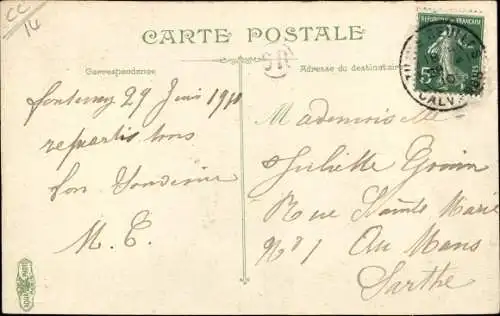 CC
14
CARTE POSTALE
Correspondance
Adresse du destinataire
OR
REPUBLIQUE FRANÇAISE
5
CALVADOS
Fontenay 29 Juin 1910
repartis tous
bon
M. C.
Mademoiselle
Juliette
Rue Sainte Marie
No 1 Au Mans
Sarthe